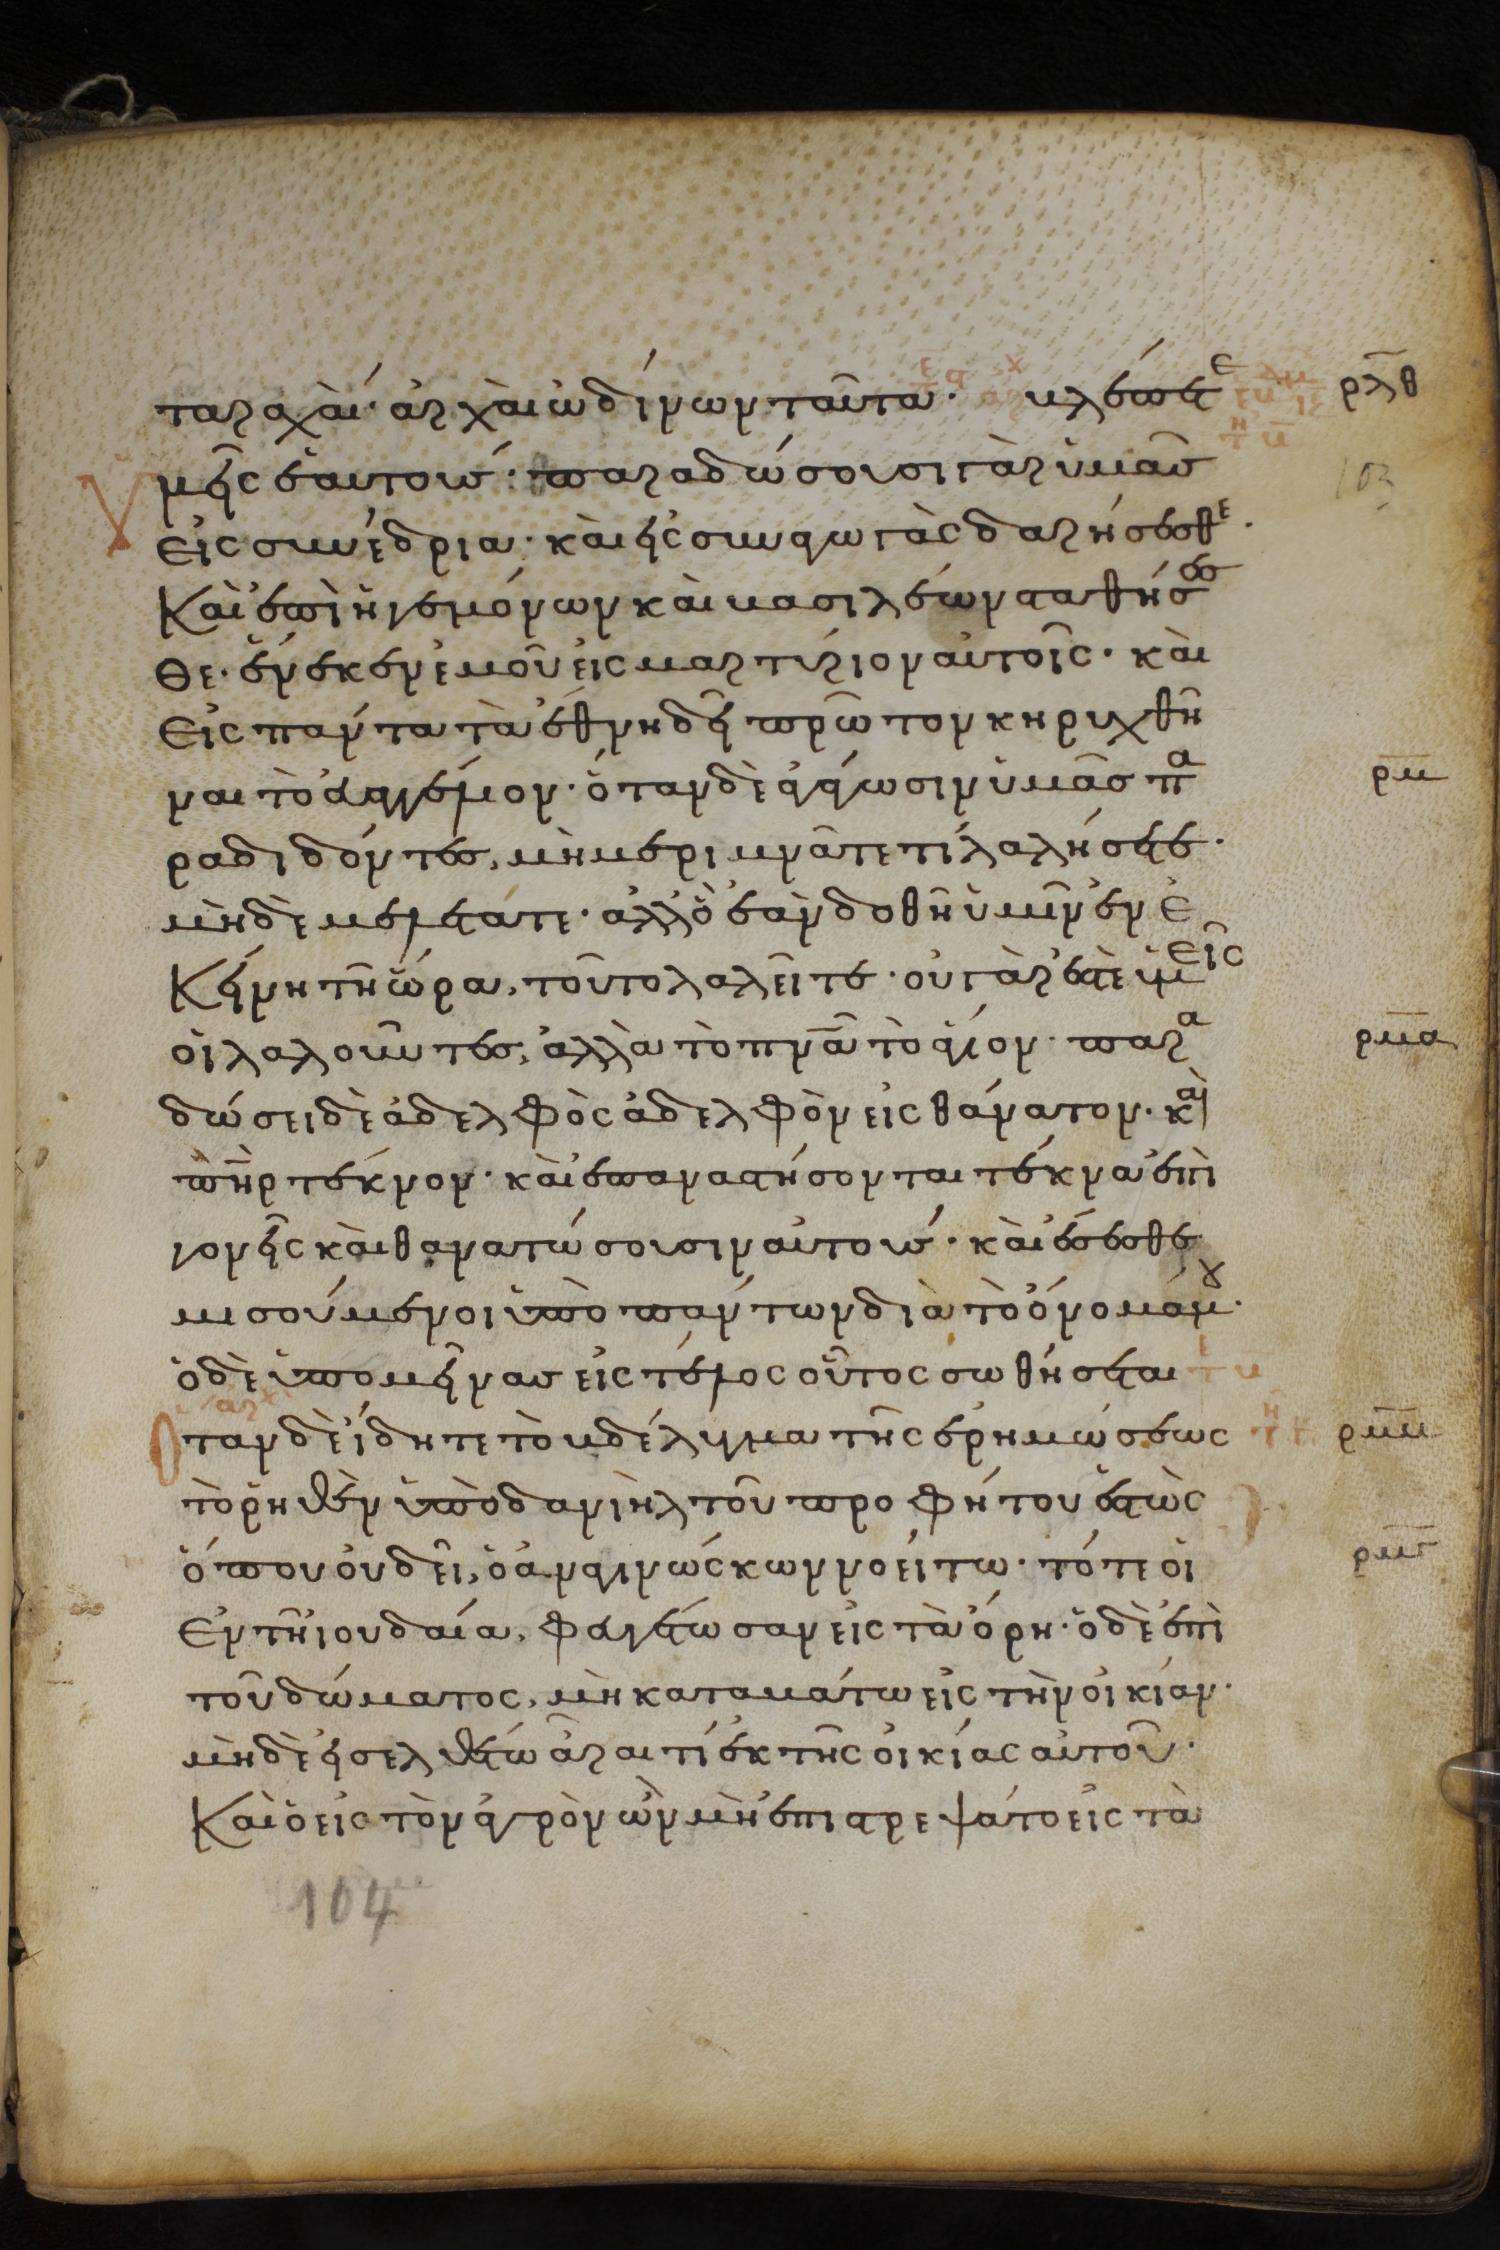 ταραχαί· ἀρχαὶ ὠδίνων ταῦτα· βλέπετε ρλθ
ὑμεῖς ἑαυτούς· παραδώσουσι γὰρ ὑμᾶς 103
εἰς συνέδρια· καὶ εἰς συναγωγὰς δαρήσεσθε·
Καὶ ἐπὶ ἡγεμόνων καὶ βασιλέων σταθήσεσ
θε· ἕνεκεν ἐμοῦ εἰς μαρτύριον αὐτοῖς· καὶ
Εἰς πάντα τὰ ἔθνη δεῖ πρῶτον κηρυχθῆ
ναι τὸ εὐαγγέλιον· ὅταν δὲ ἀγάγωσιν ὑμᾶς πα ρμ
ραδιδόντες, μὴ μεριμνᾶτε τί λαλήσητε·
μηδὲ μελετᾶτε· ἀλλ' ὃ ἐὰν δοθῇ ὑμῖν ἐν ἐ
Κείνῃ τῇ ὥρα, τοῦτο λαλεῖτε· οὐ γάρ ἐστε ὑμεῖς
οἱ λαλοῦντες, ἀλλὰ τὸ πνᾶ τὸ ἅγιον· παρα ρμα
δώσει δὲ ἀδελφὸς ἀδελφὸν εἰς θάνατον· καὶ
πηρ τέκνον· καὶ ἐπαναστήσονται τέκνα ἐπὶ
γονεῖς καὶ θανατώσουσιν αὐτούς· καὶ ἔσεσθε
μισούμενοι ὑπὸ πάντων διὰ τὸ ὄνομά μου·
ὁ δὲ ὑπομείνας εἰς τέλος οὗτος σωθήσεται
Ὅταν δὲ ἴδητε τὸ βδέλυγμα τῆς ἐρημώσεως ρμβ
τὸ ῥηθὲν ὑπὸ δανιὴλ τοῦ προφήτου ἑστὼς
ὅπου οὐ δεῖ, ὁ ἀναγινώσκων νοείτω· τότε οἱ ρμγ
Ἐν τῇ ἰουδαία, φευγέτωσαν εἰς τὰ ὄρη· ὁ δὲ ἐπὶ
τοῦ δώματος, μὴ καταβάτω εἰς τὴν οἰκίαν·
μηδὲ εἰσελθέτω ἆραι τί ἐκ τῆς οἰκίας αὐτοῦ·
Καὶ ὁ εἰς τὸν ἀγρὸν ὢν μὴ ἐπιστρεψάτο εἰς τὰ
104